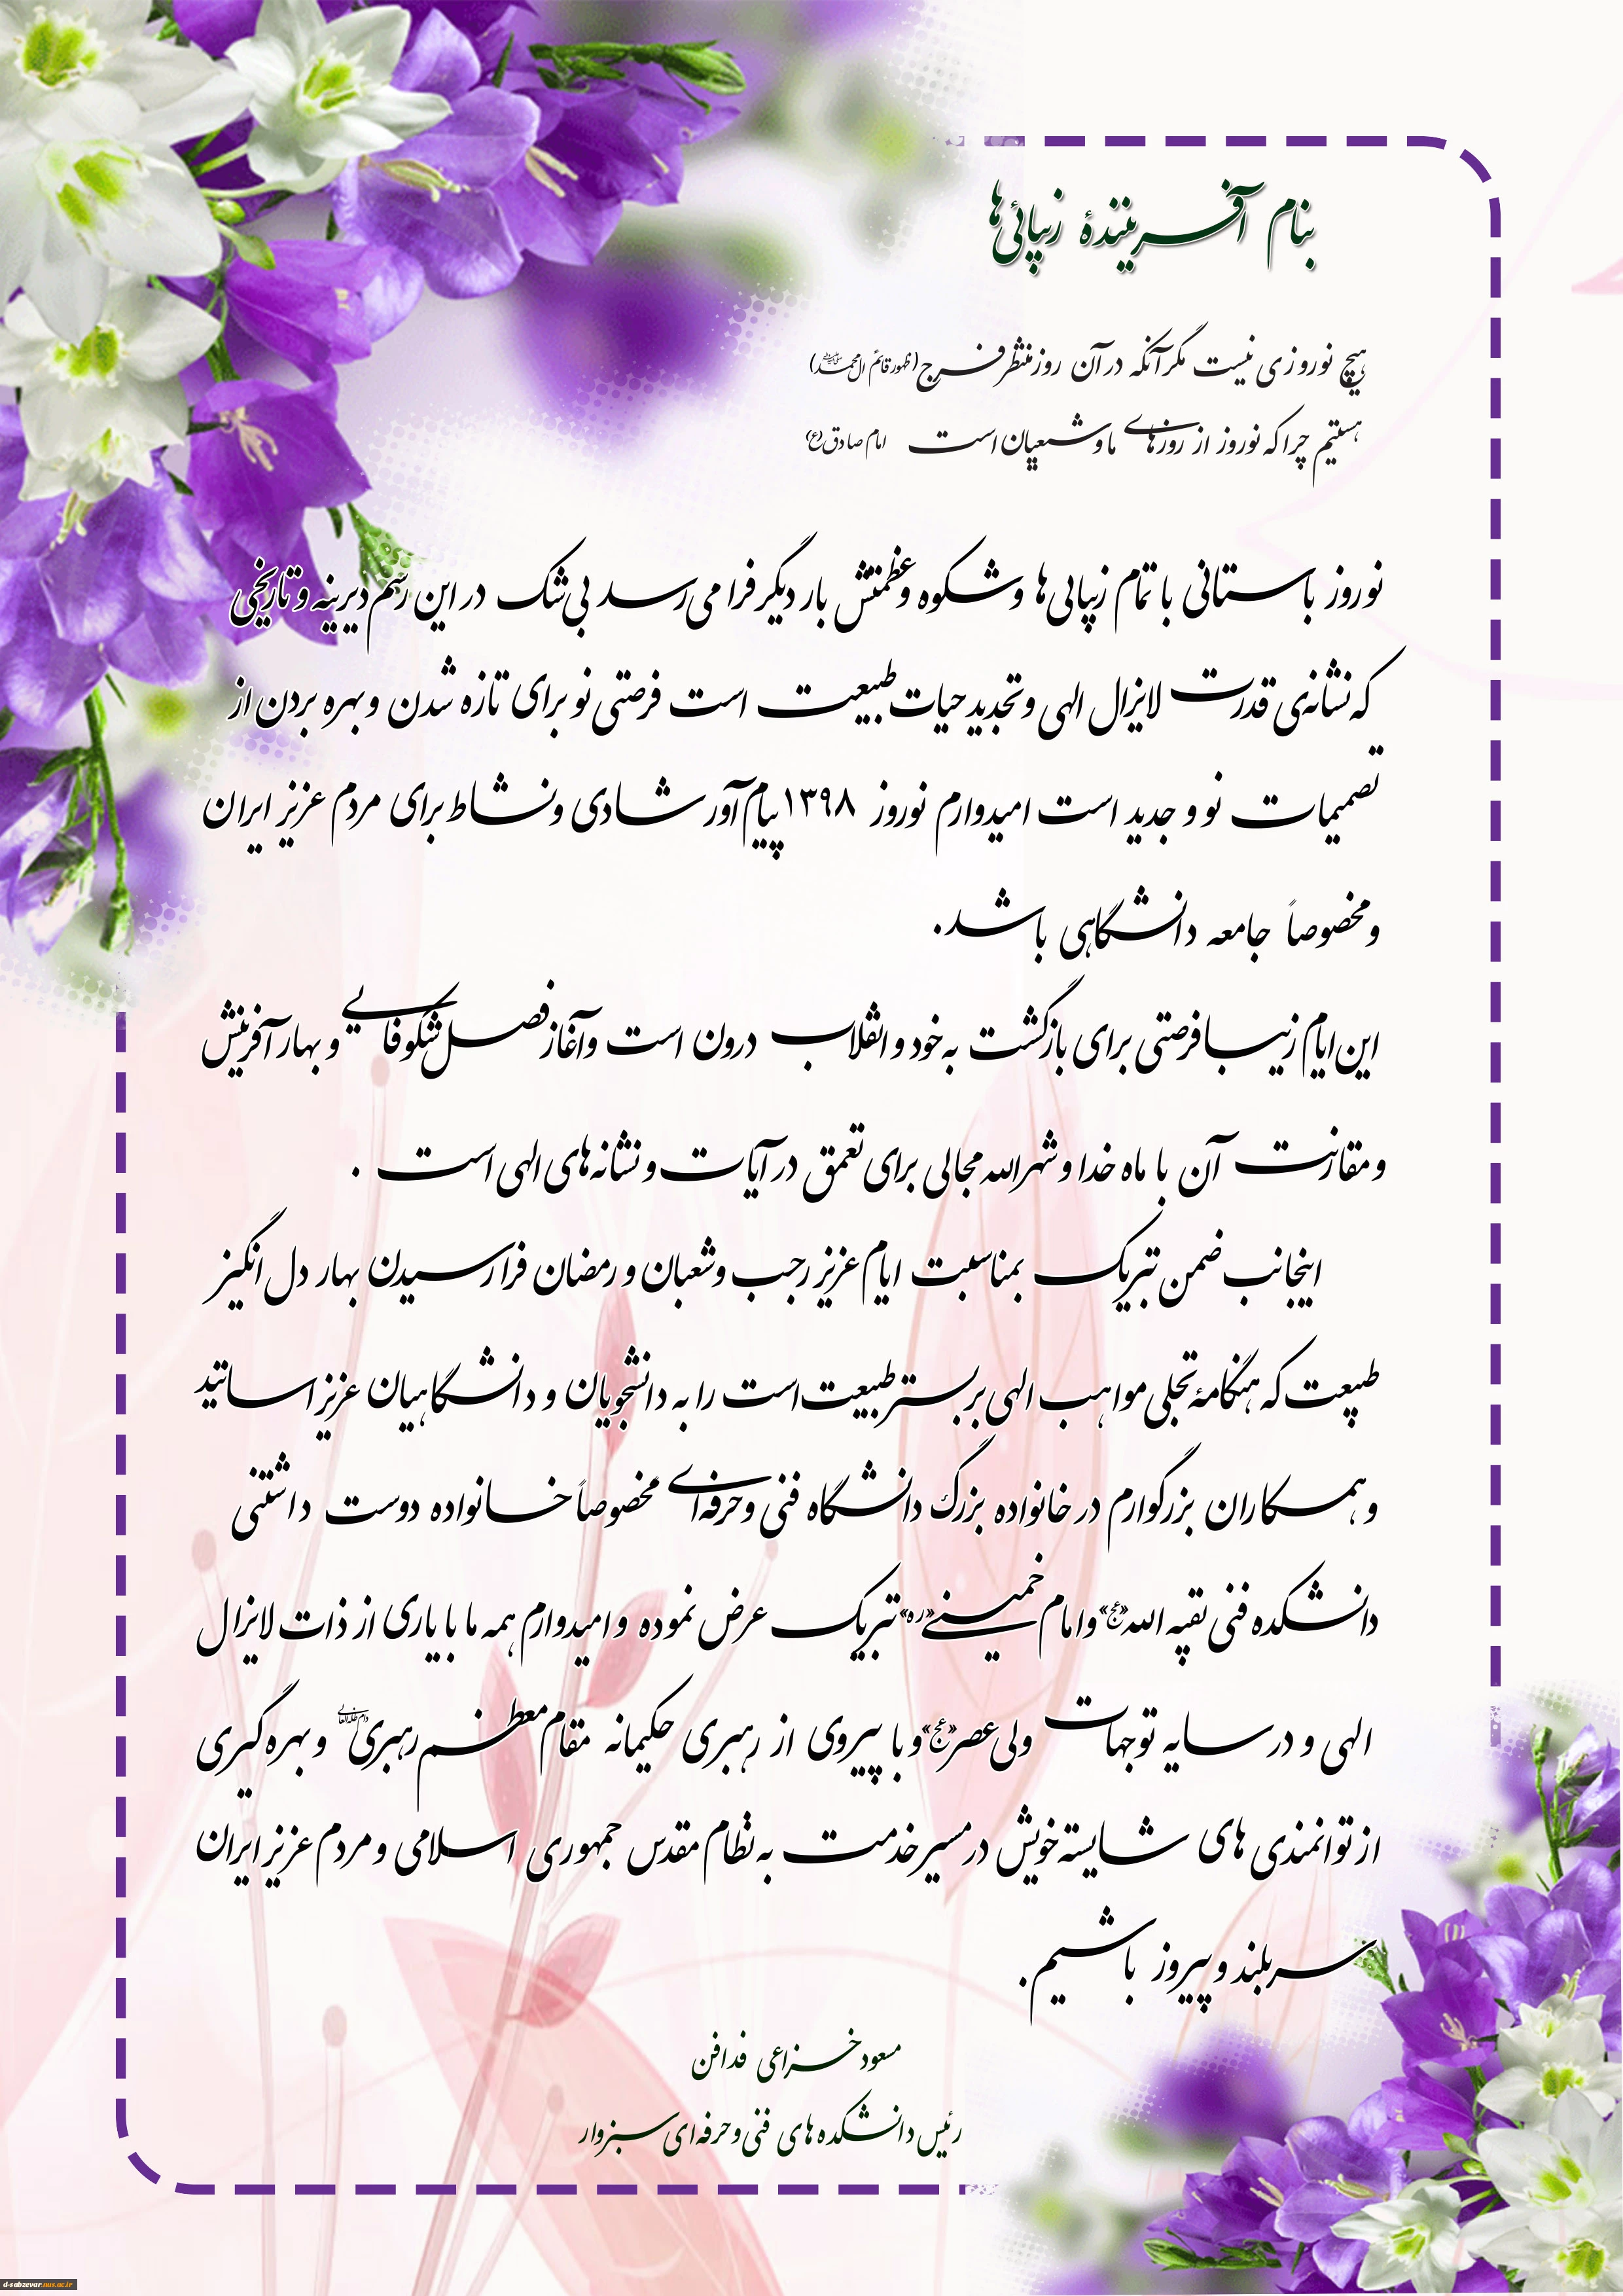 بنام آفرینندهٔ زیبائی‌ها
هیچ نوروزی نیست مگر آنکه در آن روز منتظر فرج (ظهور قائم ال محمد)
هستیم چرا که نوروز از روزهای ما و شیعیان است امام صادق (ع)
نوروز باستانی با تمام زیبایی‌ها و شکوه و عظمتش بار دیگر فرا می‌رسد بی‌شک در این رسم دیرینه و تاریخی
که نشانه‌ی قدرت لایزال الهی و تجدید حیات طبیعت است فرصتی نو برای تازه شدن و بهره بردن از
تصمیمات نو و جدید است امیدوارم نوروز ۱۳۹۸ پیام‌آور شادی و نشاط برای مردم عزیز ایران
و مخصوصاً جامعه دانشگاهی باشد.
این ایام زیبا فرصتی برای بازگشت به خود و انقلاب درون است و آغاز فصل شکوفایی و بهار آفرینش
و مقارنت آن با ماه خدا و شهرالله مجالی برای تعمق در آیات و نشانه‌های الهی است .
اینجانب ضمن تبریک بمناسبت ایام عزیز رجب و شعبان و رمضان فرا رسیدن بهار دل انگیز
طبیعت که هنگامهٔ تجلی مواهب الهی بر بستر طبیعت است را به دانشجویان و دانشگاهیان عزیز اساتید
و همکاران بزرگوارم در خانواده بزرگ دانشگاه فنی و حرفه‌ای مخصوصاً خانواده دوست داشتنی
دانشکده فنی بقیه الله«عج» و امام خمینی«ره» تبریک عرض نموده و امیدوارم همه ما با یاری از ذات لایزال
الهی و در سایه توجهات ولی عصر«عج» و با پیروی از رهبری حکیمانه مقام معظم رهبری و بهره گیری
از توانمندی های شایسته خویش در مسیر خدمت به نظام مقدس جمهوری اسلامی و مردم عزیز ایران
سربلند و پیروز باشیم.
مسعود خزاعی فدافن
رئیس دانشکده های فنی و حرفه‌ای سبزوار
d-sabzevar.nus.ac.ir